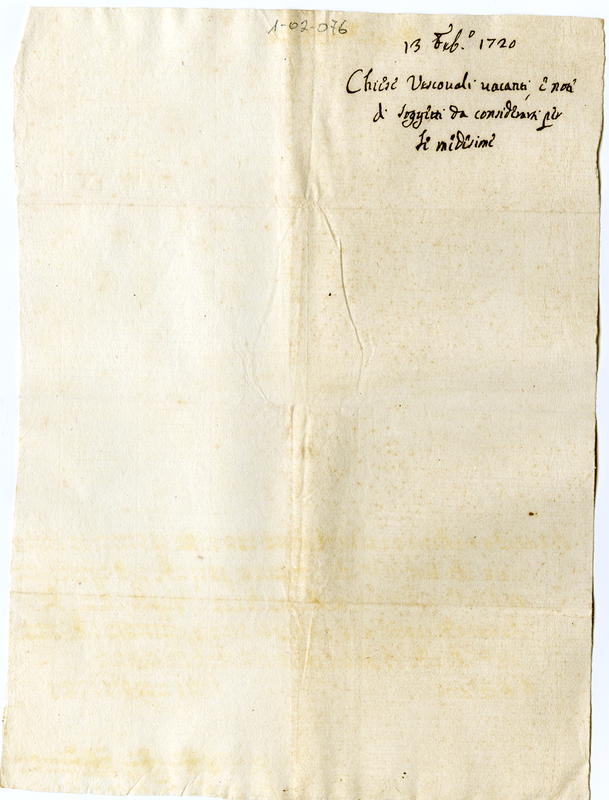 1-02-076
13 Feb.º 1720
Chiese Vescovali vacanti, e note
di soggetti da considerarsi per
le medesime